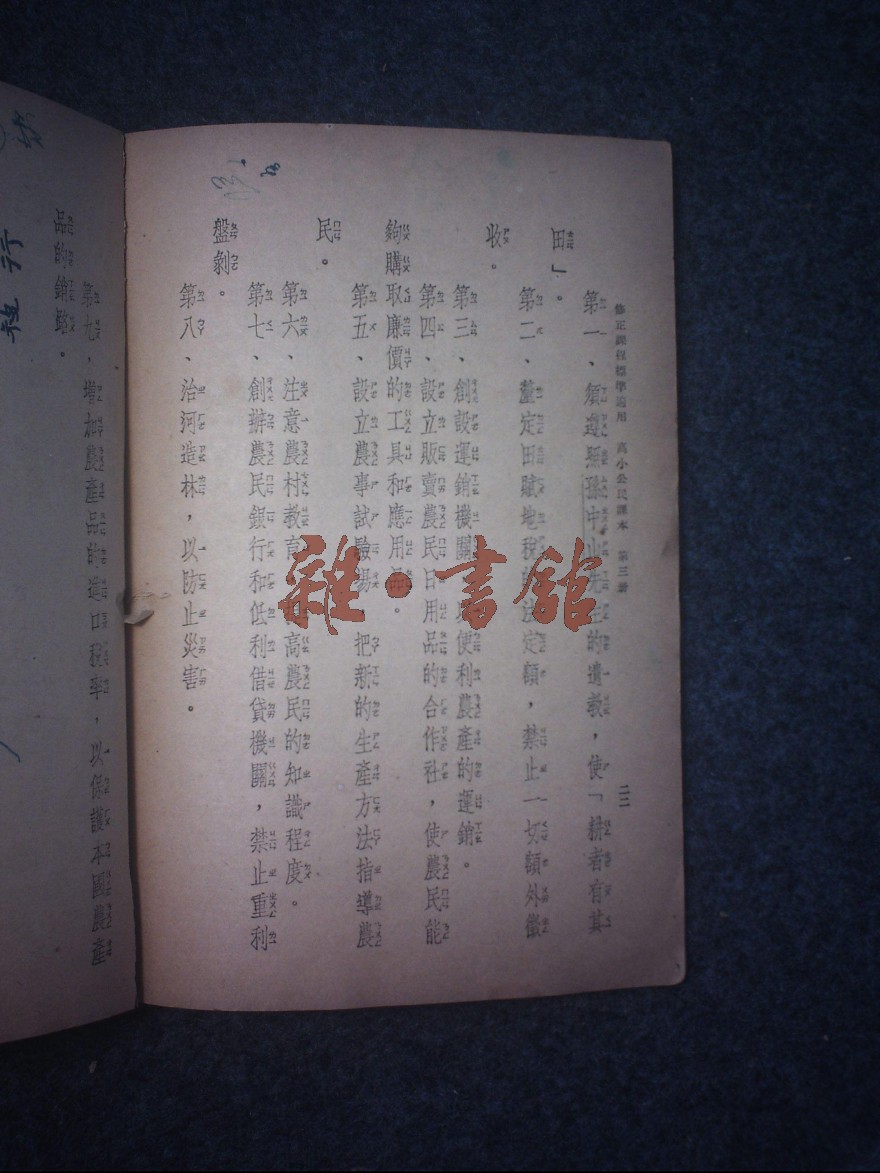 修正課程標準適用　高小公民課本　第三冊
二二
第一、須遵照孫中山先生的遺教，使「耕者有其
田」。
第二、釐定田賦地稅的法定額，禁止一切額外徵
收。
第三、創設運銷機關，以便利農產的運銷。
第四、設立販賣農民日用品的合作社，使農民能
夠購取廉價的工具和應用品。
第五、設立農事試驗場，把新的生產方法指導農
民。
第六、注意農村教育，提高農民的知識程度。
第七、創辦農民銀行和低利借貸機關，禁止重利
盤剝。
第八、治河造林，以防止災害。
第九、增加農產品的進口稅率，以保護本國農產
品的銷路。
雜·書館